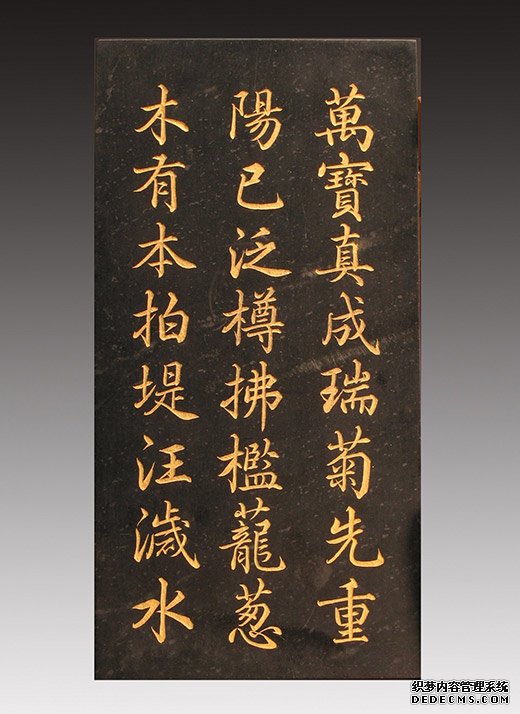 萬寶真成瑞菊先重
陽已泛樽拂檻蘢蔥
木有本拍堤汪濊水
织梦内容管理系统
DEDECMS.COM